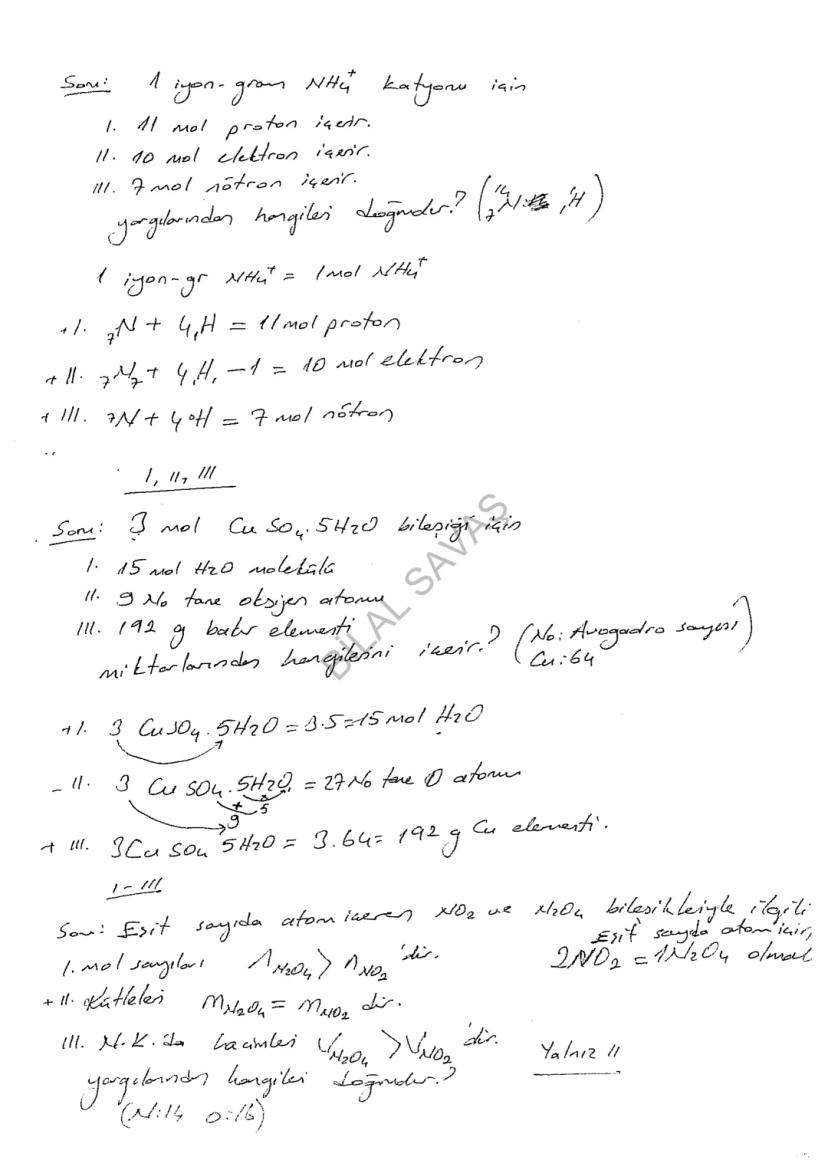 Soru: 1 iyon-gram NH4+ katyonu için
I. 11 mol proton içerir.
II. 10 mol elektron içerir.
III. 7 mol nötron içerir.
yargılarından hangileri doğrudur? (¹⁴₇N: ₁¹H)
1 iyon-gr NH4+ = 1 mol NH4+
+ I. ₇N + 4₁H = 11 mol proton
+ II. ₇N₇ + 4₁H₁ - 1 = 10 mol elektron
+ III. 7N + 4⁰H = 7 mol nötron
I, II, III
Soru: 3 mol CuSO4.5H2O bileşiği için
I. 15 mol H2O molekülü
II. 9 No tane oksijen atomu
III. 192 g bakır elementi
miktarlarından hangilerini içerir? (No: Avogadro sayısı
Cu: 64)
+ I. 3 CuSO4.5H2O = 3.5 = 15 mol H2O
- II. 3 CuSO4.5H2O = 27 No tane O atomu
+ 5
9
+ III. 3CuSO4 5H2O = 3.64 = 192 g Cu elementi.
I - III
Soru: Eşit sayıda atom içeren NO2 ve N2O4 bileşikleriyle ilgili
Eşit sayıda atom için,
I. mol sayıları nN2O4 > nNO2 'dir. 2NO2 = 1N2O4 olmalı
+ II. Kütleleri mN2O4 = mNO2 dir.
III. N.K.da hacimleri VN2O4 > VNO2 'dir. Yalnız II
yargılarından hangileri doğrudur?
(N:14 O:16)
BİLAL SAVAS